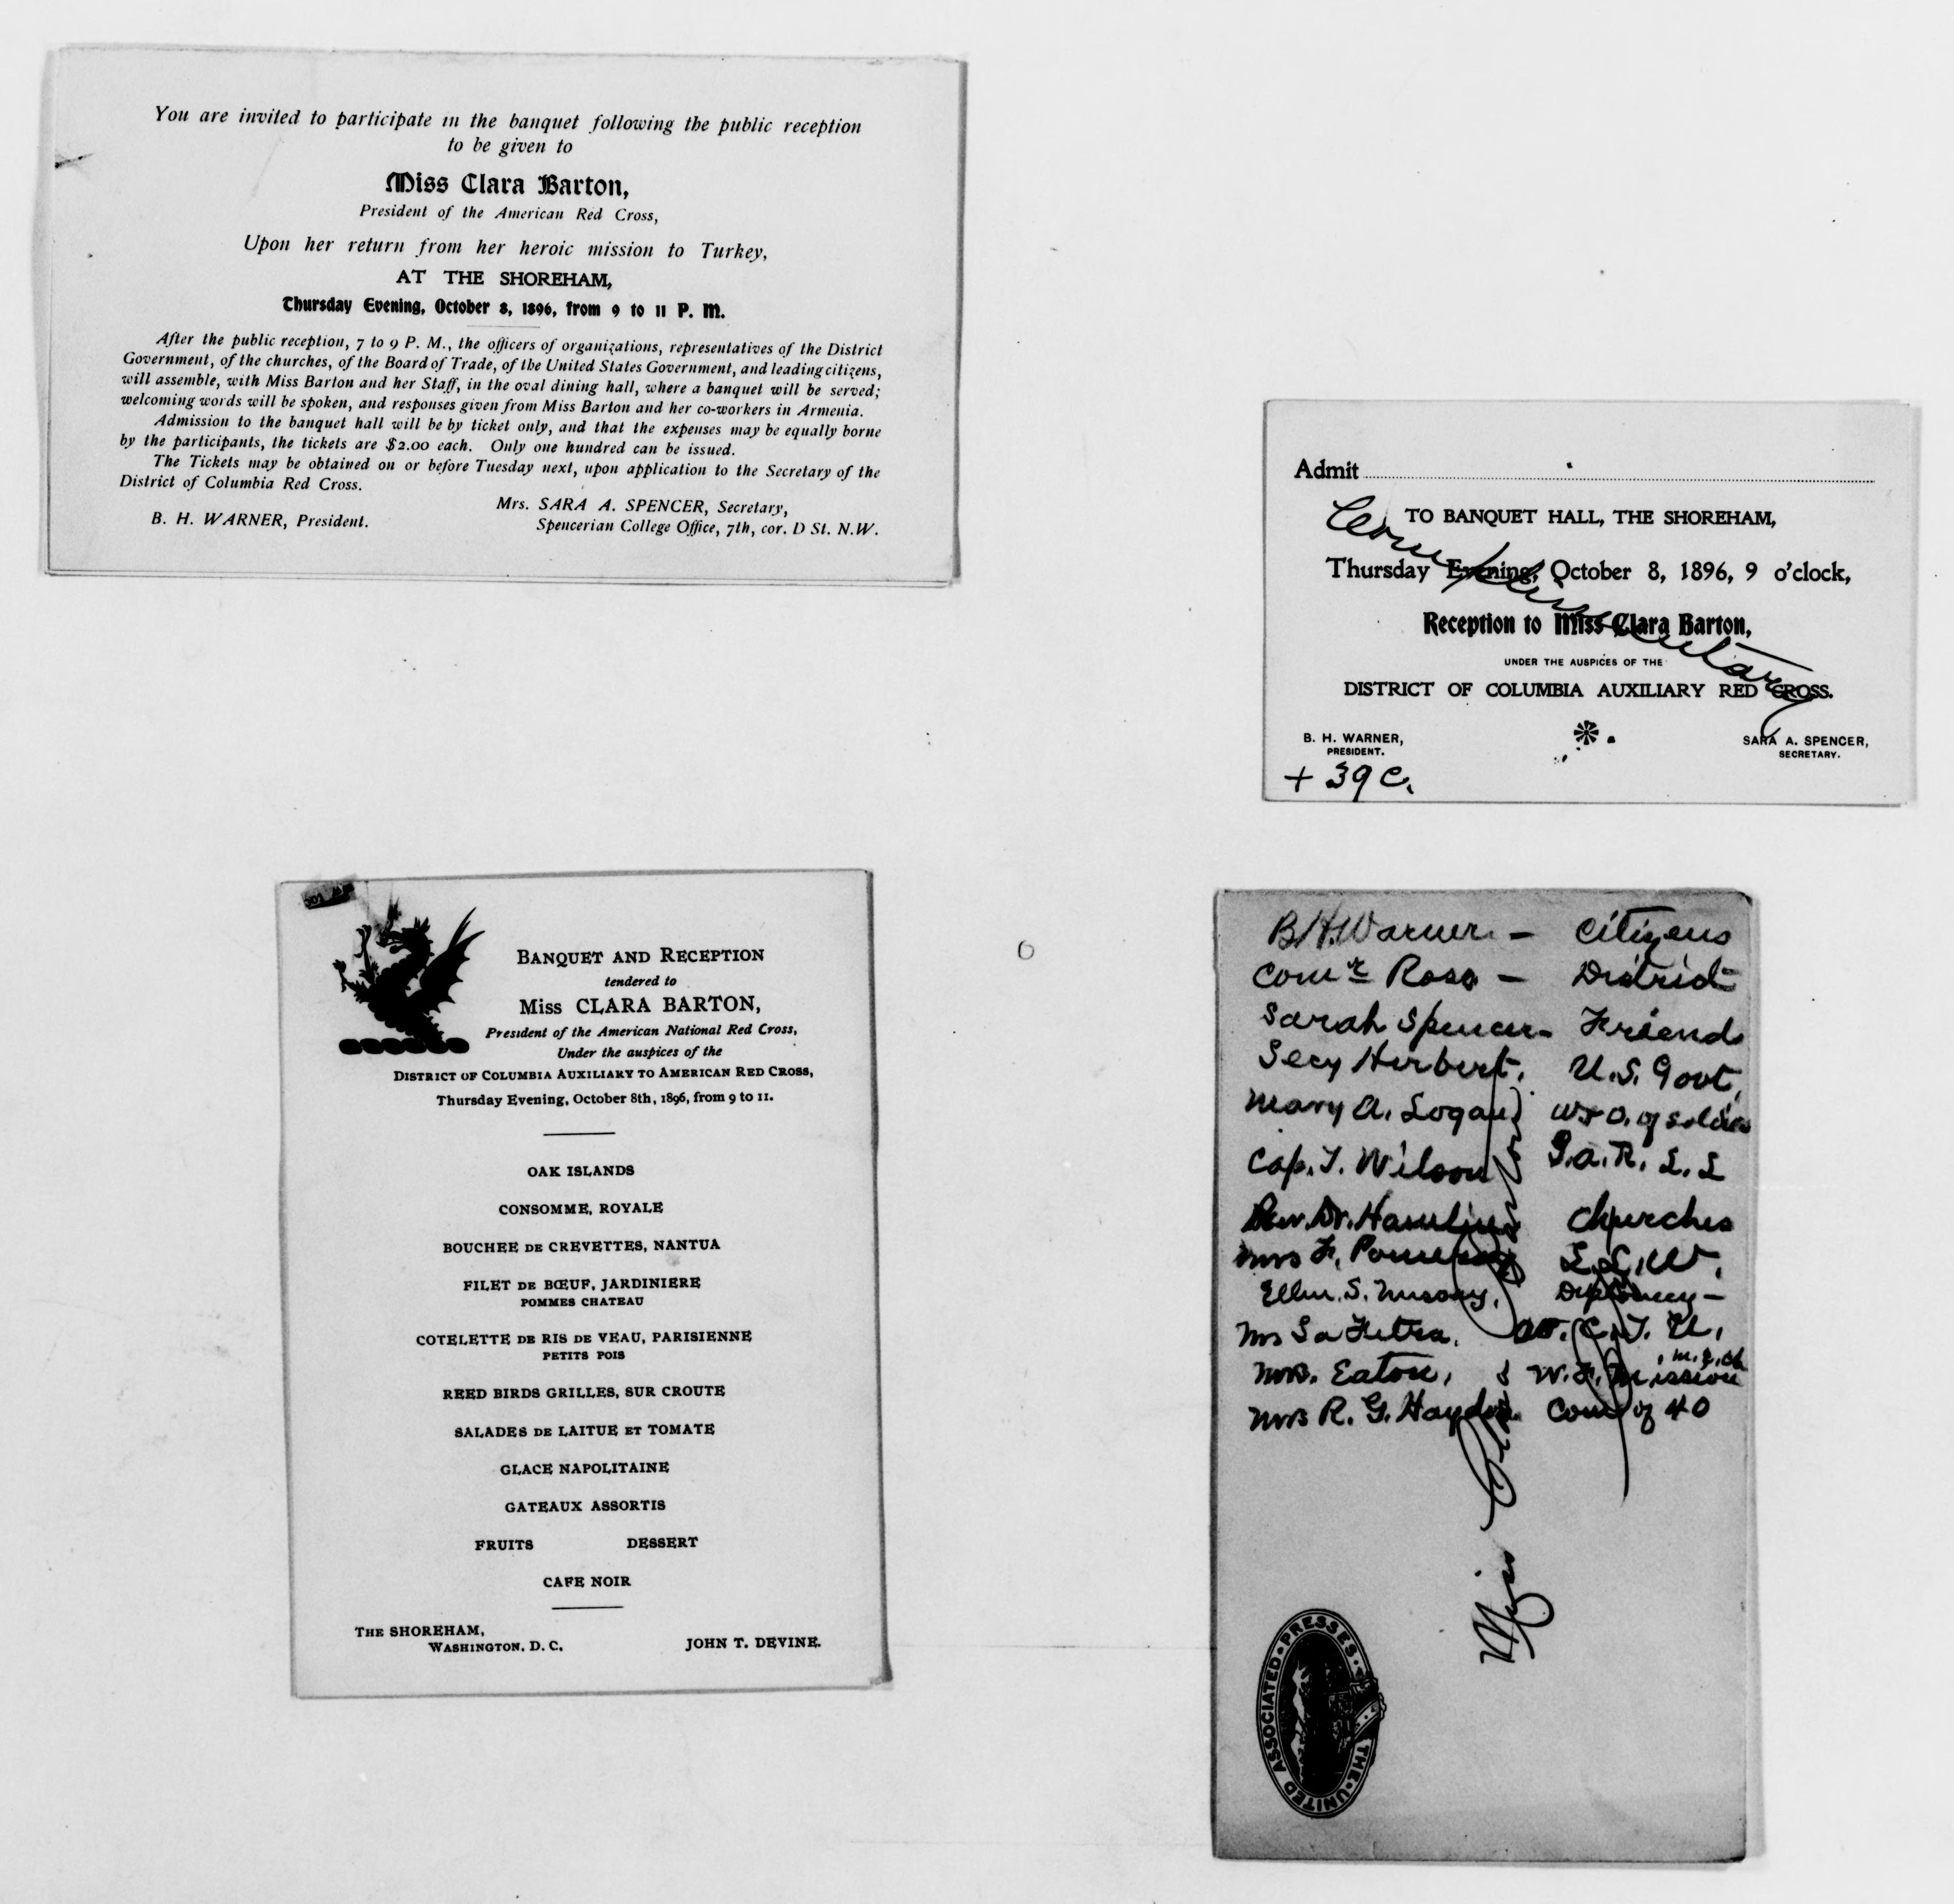 You are invited to participate in the banquet following the public reception
to be given to
Miss Clara Barton,
President of the American Red Cross,
Upon her return from her heroic mission to Turkey,
AT THE SHOREHAM,
Thursday Evening, October 8, 1896, from 9 to 11 P. M.
After the public reception, 7 to 9 P. M., the officers of organizations, representatives of the District
Government, of the churches, of the Board of Trade, of the United States Government, and leading citizens,
will assemble, with Miss Barton and her Staff, in the oval dining hall, where a banquet will be served;
welcoming words will be spoken, and responses given from Miss Barton and her co-workers in Armenia.
Admission to the banquet hall will be by ticket only, and that the expenses may be equally borne
by the participants, the tickets are $2.00 each. Only one hundred can be issued.
The Tickets may be obtained on or before Tuesday next, upon application to the Secretary of the
District of Columbia Red Cross.
B. H. WARNER, President.
Mrs. SARA A. SPENCER, Secretary,
Spencerian College Office, 7th, cor. D St. N.W.
Admit
TO BANQUET HALL, THE SHOREHAM,
Thursday Evening, October 8, 1896, 9 o'clock,
Reception to Miss Clara Barton,
UNDER THE AUSPICES OF THE
DISTRICT OF COLUMBIA AUXILIARY RED CROSS.
Complimentary
B. H. WARNER,
PRESIDENT.
SARA A. SPENCER,
SECRETARY.
+ 39 C.
BANQUET AND RECEPTION
tendered to
Miss CLARA BARTON,
President of the American National Red Cross,
Under the auspices of the
DISTRICT OF COLUMBIA AUXILIARY TO AMERICAN RED CROSS,
Thursday Evening, October 8th, 1896, from 9 to 11.
OAK ISLANDS
CONSOMME, ROYALE
BOUCHEE DE CREVETTES, NANTUA
FILET DE BŒUF, JARDINIERE
POMMES CHATEAU
COTELETTE DE RIS DE VEAU, PARISIENNE
PETITS POIS
REED BIRDS GRILLES, SUR CROUTE
SALADES DE LAITUE ET TOMATE
GLACE NAPOLITAINE
GATEAUX ASSORTIS
FRUITS DESSERT
CAFE NOIR
THE SHOREHAM,
WASHINGTON, D. C.
JOHN T. DEVINE.
B.H. Warner - Citizens
Comr Ross - District
Sarah Spencer - Friends
Secy Herbert, U.S. Govt,
Mary A. Logan
Cap. T. Wilson G.A.R. L.L
Rev. Dr. Hamlin Churches
Mrs F. Pomeroy
Ellen S. Mussey,
Mrs La Fetra, W.C.T.U.
Mrs. Eaton, & W.F. Mission
Mrs R. G. Hayden Com of 40
Miss Clara Barton
THE UNITED ASSOCIATED PRESSES